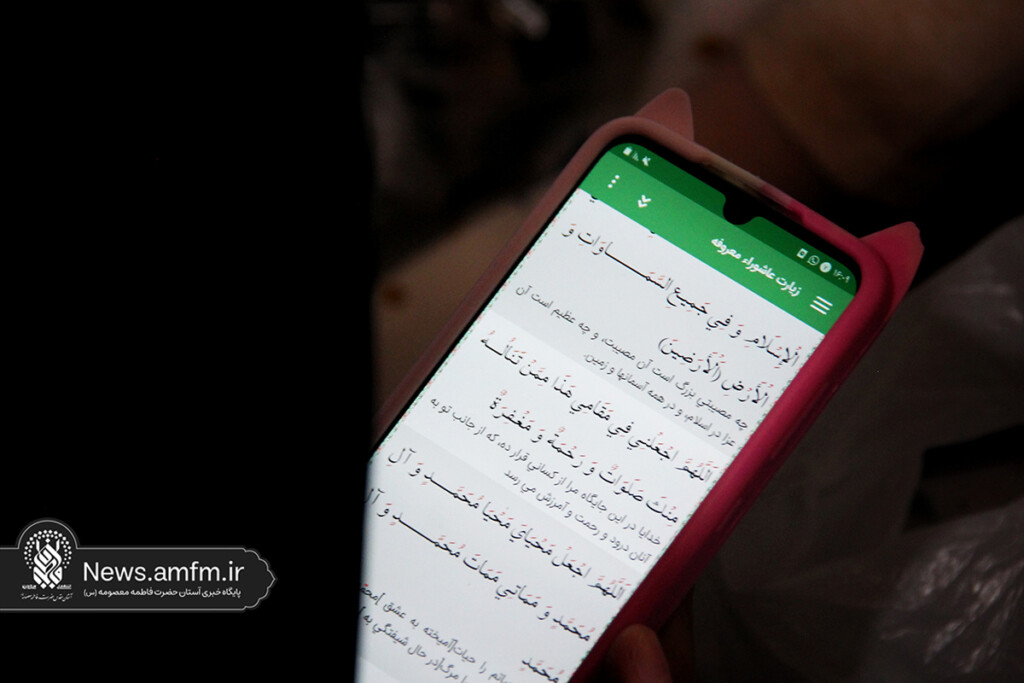 ۱۶:۰۹
زیارت عاشوراء معروفه
الْإِسْلَامِ وَ فِي جَمِيعِ السَّمَاوَاتِ وَ
الْأَرْضِ (الْأَرَضِينَ)
چه مصيبتي بزرگ است آن مصيبت، و چه عظيم است آن
عزا در اسلام، و در همه آسمانها و زمين.
اَللَّهُمَّ اجْعَلْنِي فِي مَقَامِي هَذَا مِمَّنْ تَنَالُهُ
مِنْكَ صَلَوَاتٌ وَ رَحْمَةٌ وَ مَغْفِرَةٌ
خدايا در اين جايگاه مرا از كساني قرار ده، كه از جانب تو به
آنان درود و رحمت و آمرزش مي رسد
اَللَّهُمَّ اجْعَلْ مَحْيَايَ مَحْيَا مُحَمَّدٍ وَ آلِ
مُحَمَّدٍ وَ مَمَاتِي مَمَاتَ مُحَمَّدٍ وَ آلِ
مُحَمَّدٍ
را حيات(آميخته به عشق
مرگ(در حال شيفتگي به
News.amfm.ir
پایگاه خبری آستان حضرت فاطمه معصومه (س)